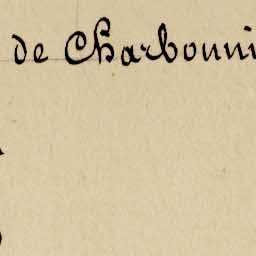 de Charbonni